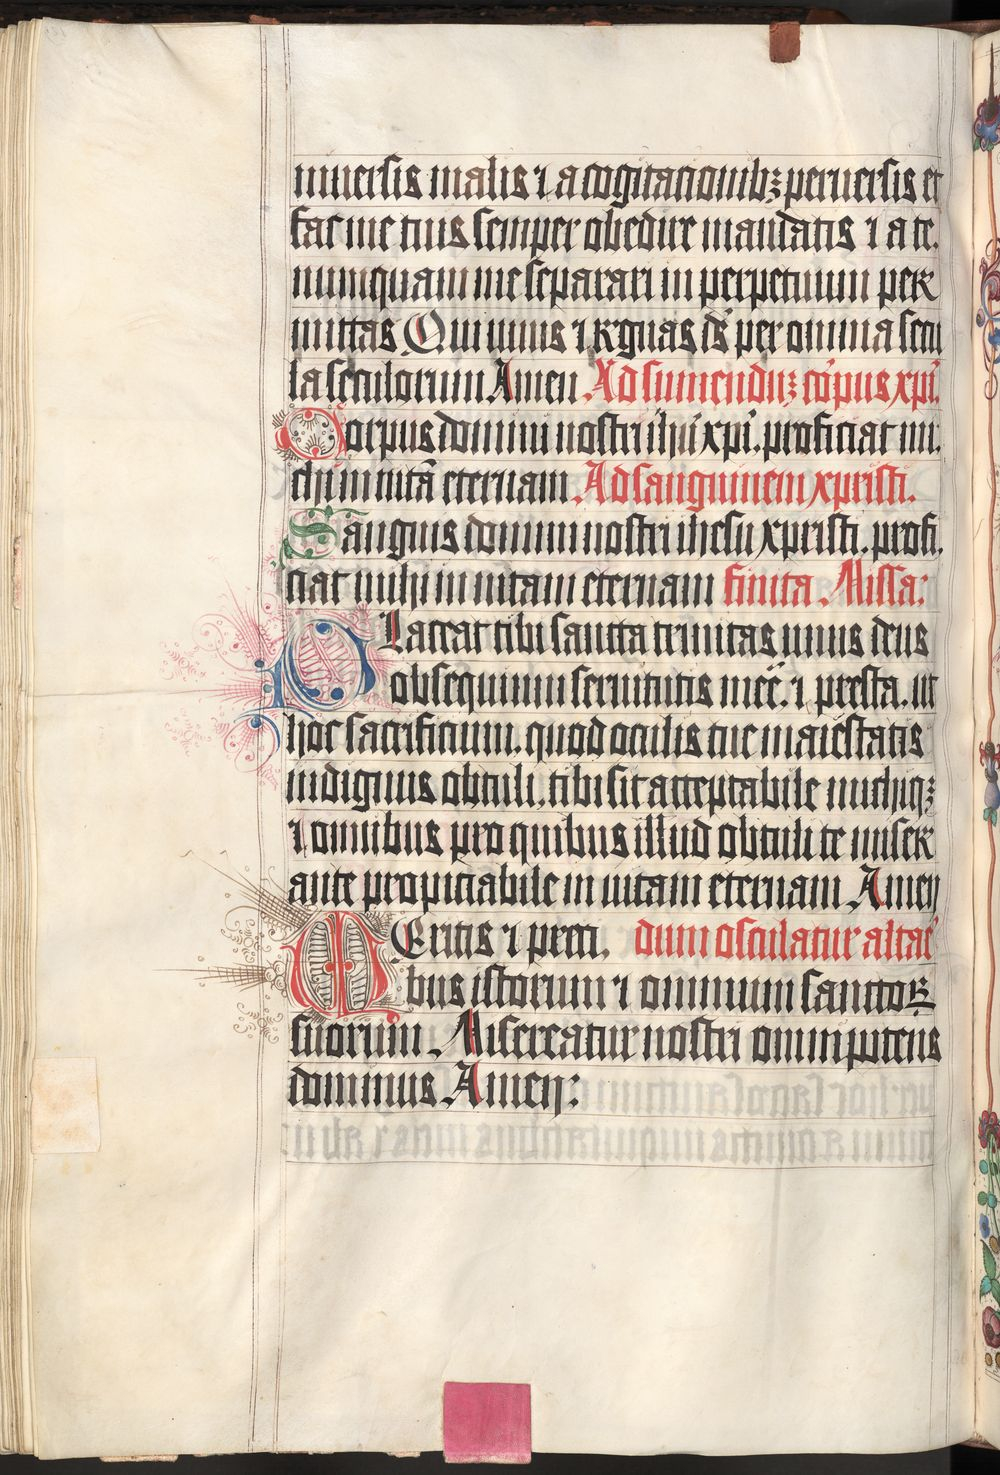 niuersis malis ⁊ a cogitacionibꝫ peruersis et
fac me tuis semper obedire mandatis ⁊ a te.
nuniquam me separari in perpetuum per
mittas Qui uiuis ⁊ regnas ds̄ per omnia secu
la seculorum Amen Ad sumenduꝫ cōpus xpi̅.
Corpus domini nostri ihu̅ xpi̅. proficiat mi
chi in uitā eternam Ad sanguinem xpristi.
Sanguis domini nostri ihesu xpristi. profi
ciat mihi in uitam eternam finita Missa:
PLaceat tibi sancta trinitas unus deus
obsequium seruitutis mee. ⁊ presta. ut
hoc sacrificium. quod oculis tue maiestatis
indignus obtuli. tibi sit acceptabile michiqꝫ
⁊ omnibus pro quibus illud obtuli te miser
ante propiciabile in uitam eternam Amen
MEritis ⁊ preci. dum osculatur altare
bus istorum ⁊ omnium sanctoꝝ
suorum. Misereatur nostri omnipotens
dominus Amen: